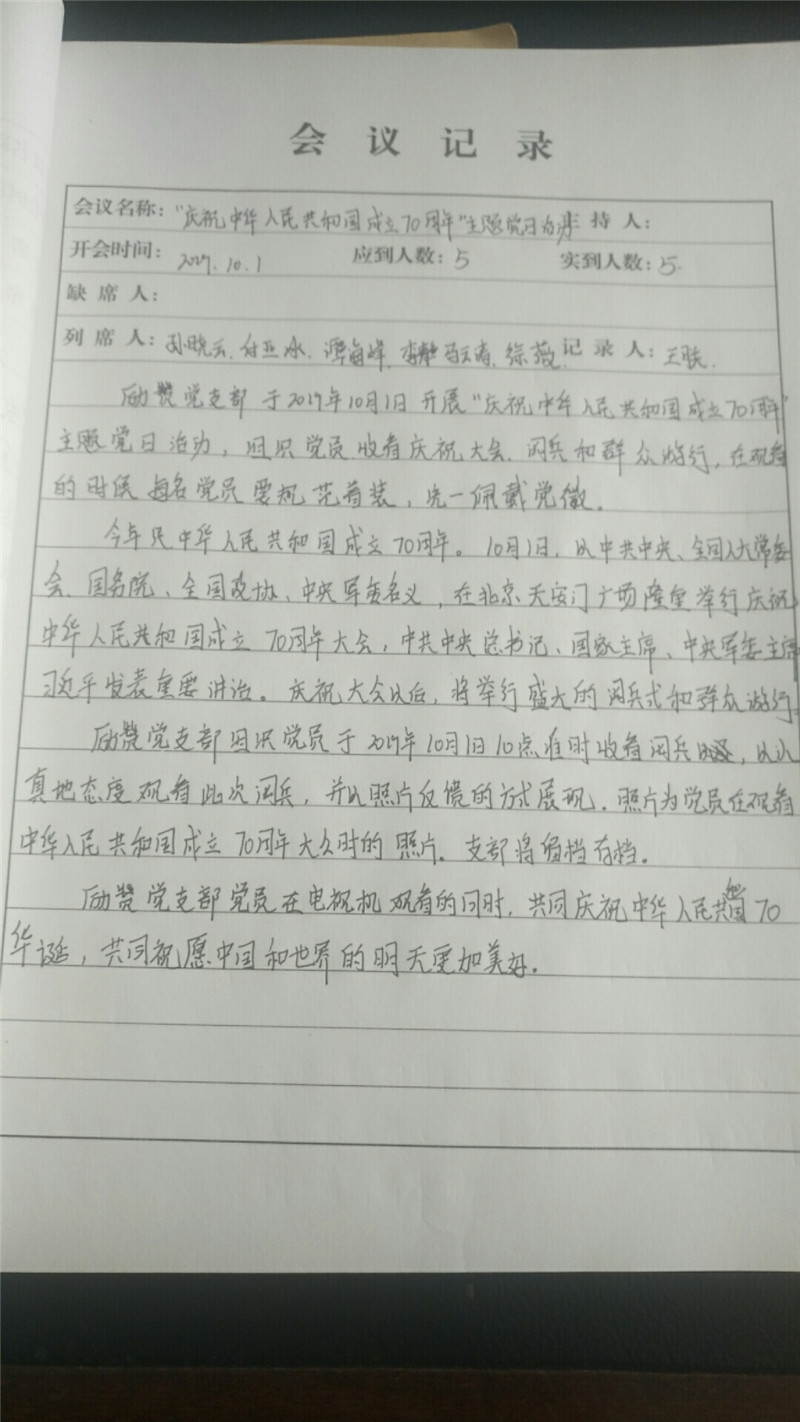 会议记录
会议名称：“庆祝中华人民共和国成立70周年”主题党日活动 主持人：
开会时间：2019.10.1 应到人数：5 实到人数：5
缺席人：
列席人：孙晓云、付亚冰、谭海峰、李静、徐薇 记录人：王联
励赞党支部于2019年10月1日开展“庆祝中华人民共和国成立70周年”
主题党日活动，组织党员收看庆祝大会、阅兵和群众游行，在观看
的时候每名党员要规范着装，统一佩戴党徽。
今年是中华人民共和国成立70周年。10月1日，以中共中央、全国人大常委
会、国务院、全国政协、中央军委名义，在北京天安门广场隆重举行庆祝
中华人民共和国成立70周年大会，中共中央总书记、国家主席、中央军委主席
习近平发表重要讲话。庆祝大会以后，将举行盛大的阅兵式和群众游行。
励赞党支部组织党员于2019年10月1日10点准时收看阅兵，以认
真地态度观看此次阅兵，并以照片反馈的方式展现。照片为党员在观看
中华人民共和国成立70周年大会时的照片。支部将留档存档。
励赞党支部党员在电视机观看的同时，共同庆祝中华人民共和国70
华诞，共同祝愿中国和世界的明天更加美好。